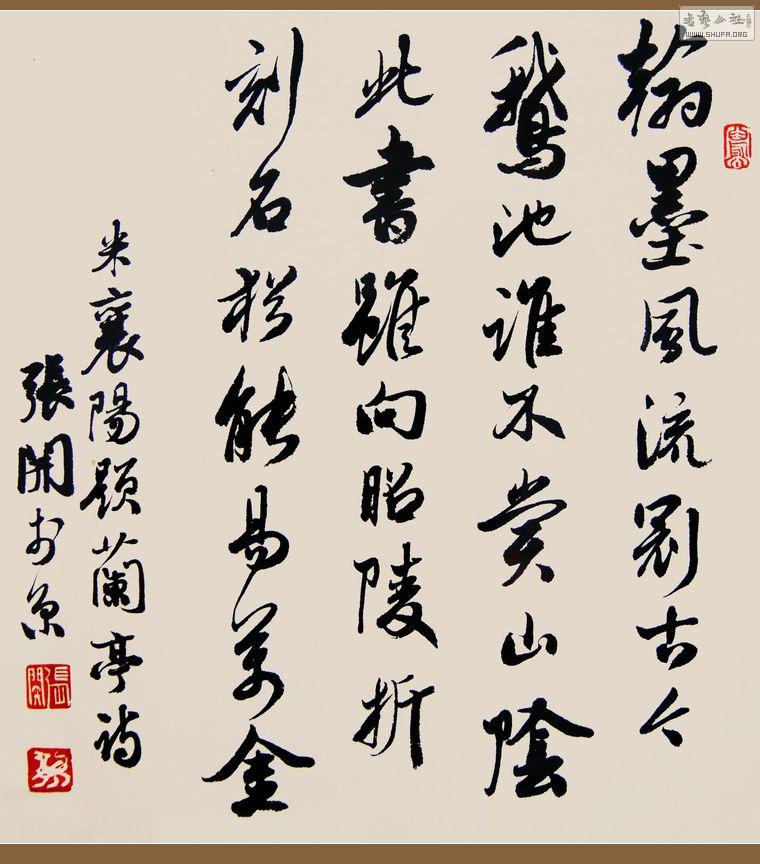 書藝公社
WWW.SHUFA.ORG
翰墨風流冠古今
鵝池誰不賞山陰
此書雖向昭陵折
刻石猶能易萬金
米襄陽題蘭亭詩
張開於京